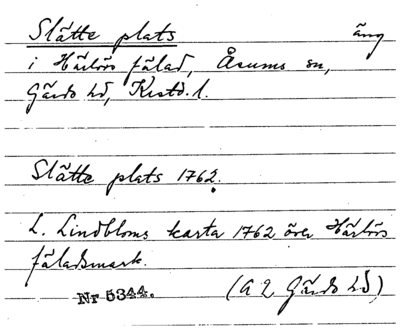 Slätte plats äng
i Härlövs fälad, Åsums sn,
Gärds hd, Krstd. l.
Slätte plats 1762.
L. Lindbloms karta 1762 över Härlövs
fäladsmark.
Nr 5344. (A 2 Gärds hd)